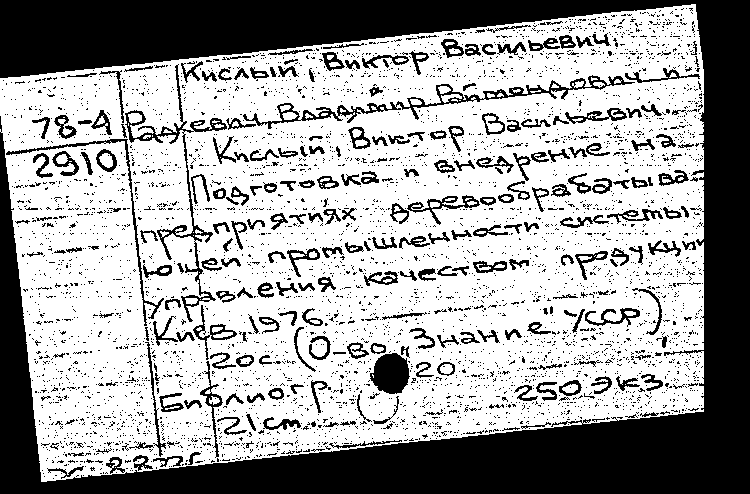 Кислый, Виктор Васильевич.
78-4
2910
Радкевич, Владимир Раймондович и
Кислый, Виктор Васильевич.
Подготовка и внедрение на
предприятиях деревообрабатыва-
ющей промышленности системы
управления качеством продукции
Киев, 1976.
20с. (О-во "Знание" УССР).
Библиогр.: 20.
250 экз.
21 cm.